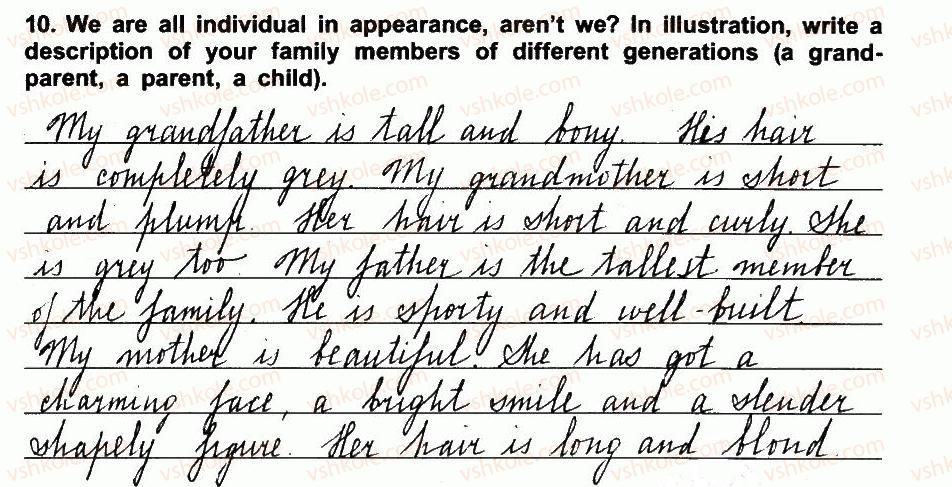 10. We are all individual in appearance, aren't we? In illustration, write a
description of your family members of different generations (a grand-
parent, a parent, a child).
My grandfather is tall and bony. His hair
is completely grey. My grandmother is short
and plump. Her hair is short and curly. She
is grey too. My father is the tallest member
of the family. He is sporty and well-built.
My mother is beautiful. She has got a
charming face, a bright smile and a slender
shapely figure. Her hair is long and blond.